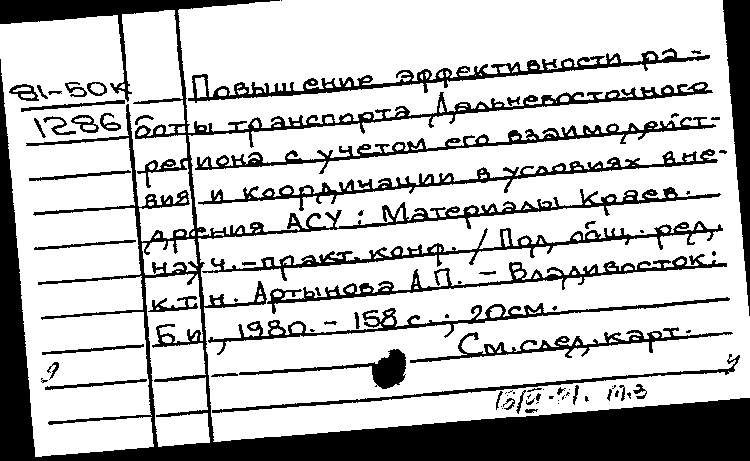 81-50к
1286
Повышение эффективности ра=
боты транспорта Дальневосточного
региона с учетом его взаимодейст-
вия и координации в условиях вне-
дрения АСУ: Материалы Краев.
науч.-практ. конф. / Под общ. ред.
к.т.н. Артынова А.П. - Владивосток:
Б.и., 1980. - 158 с.; 20см.
См. след. карт.